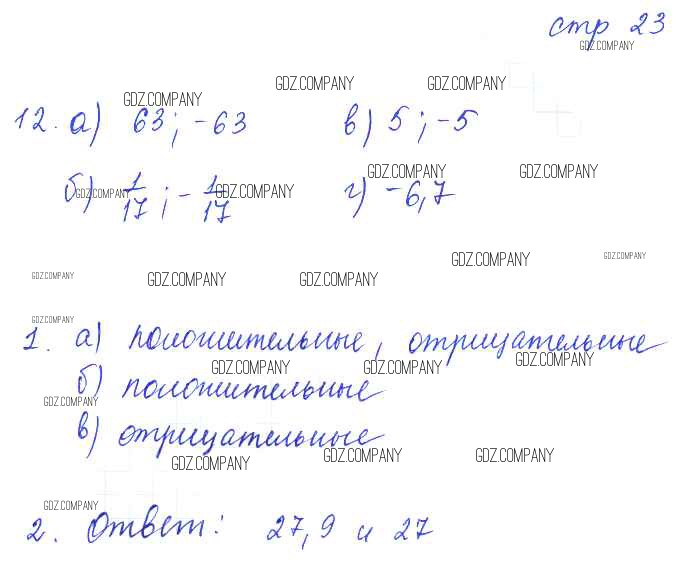 стр 23
GDZ.COMPANY
GDZ.COMPANY GDZ.COMPANY
GDZ.COMPANY
12. а) 63; -63 в) 5; -5
GDZ.COMPANY GDZ.COMPANY
б) 1/17; -1/17 г) -6,7
GDZ.COMPANY GDZ.COMPANY
GDZ.COMPANY GDZ.COMPANY
GDZ.COMPANY GDZ.COMPANY GDZ.COMPANY
GDZ.COMPANY
1. а) положительные, отрицательные
GDZ.COMPANY
GDZ.COMPANY GDZ.COMPANY
б) положительные
GDZ.COMPANY
в) отрицательные
GDZ.COMPANY GDZ.COMPANY GDZ.COMPANY
GDZ.COMPANY
2. Ответ: 27,9 и 27